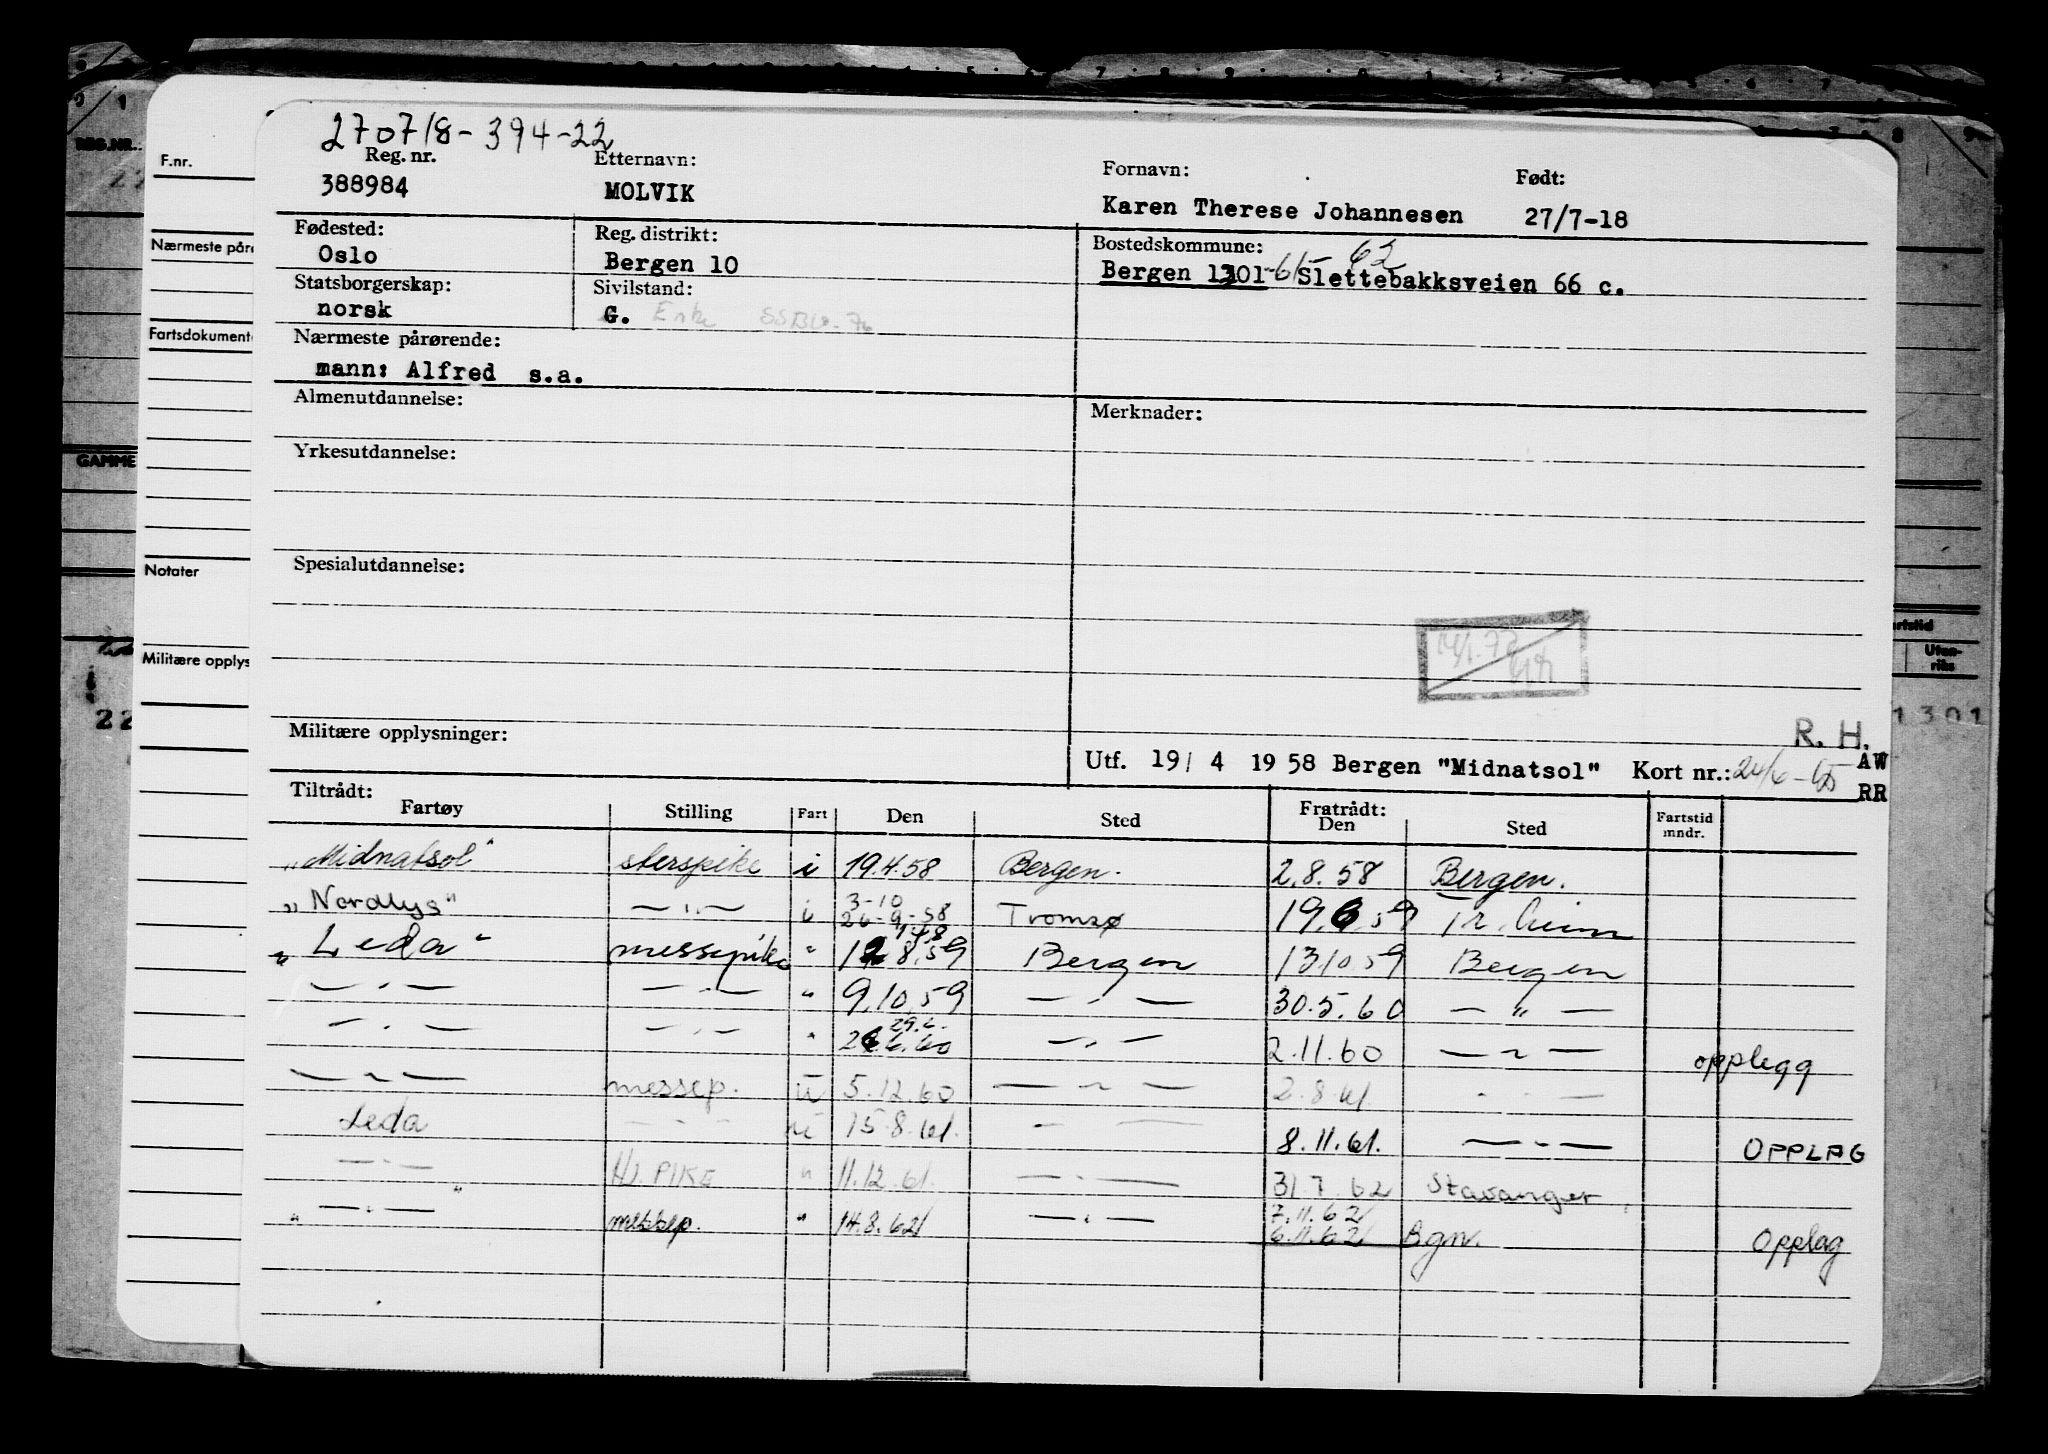 270718-394-22
Reg. nr. Etternavn: Fornavn: Født:
388984 MOLVIK Karen Therese Johannesen 27/7-18
Fødested: Reg. distrikt: Bostedskommune:
Oslo Bergen 10 Bergen 1301 Slettebakksveien 66 c.
62
Statsborgerskap: Sivilstand:
norsk G. Enke
Nærmeste pårørende:
mann: Alfred s.a.
Almenutdannelse: Merknader:
Yrkesutdannelse:
Spesialutdannelse:
Militære opplysninger:
R. H.
Utf. 19/ 4 1958 Bergen "Midnatsol" Kort nr.: 24/6-65 AW
RR
Tiltrådt: Fratrådt:
Fartøy Stilling Fart Den Sted Den Sted Fartstid mndr.
"Midnatsol" i 19.4.58 Bergen. 2.8.58 Bergen.
3-10
"Nordlys" — " — i 26-9-58 Tromsø 19.6.59 Tr.heim
"Leda" messepike " 8.59 Bergen 13.10.59 Bergen
— " — — " — " 9.10.59 — " — 30.5.60 — " —
29.6.
— " — — " — " 6.60 — " — 2.11.60 — " — opplegg
— " — messep. u 5.12.60 — " — 2.8.61. — " —
Leda — " — u 15.8.61. — — 8.11.61. — " — OPPLAG
— " — PIKE " 11.12.61. — " — 31.7.62 Stavanger
7.11.62
" — " — messep. " 14.8.62 — " — 6.11.62 Bgn. Opplag
F.nr.
Nærmeste påre
Fartsdokument
Notater
Militære opplys
REG.NR.
GAMME
22
artstid
Uten-
riks
1301